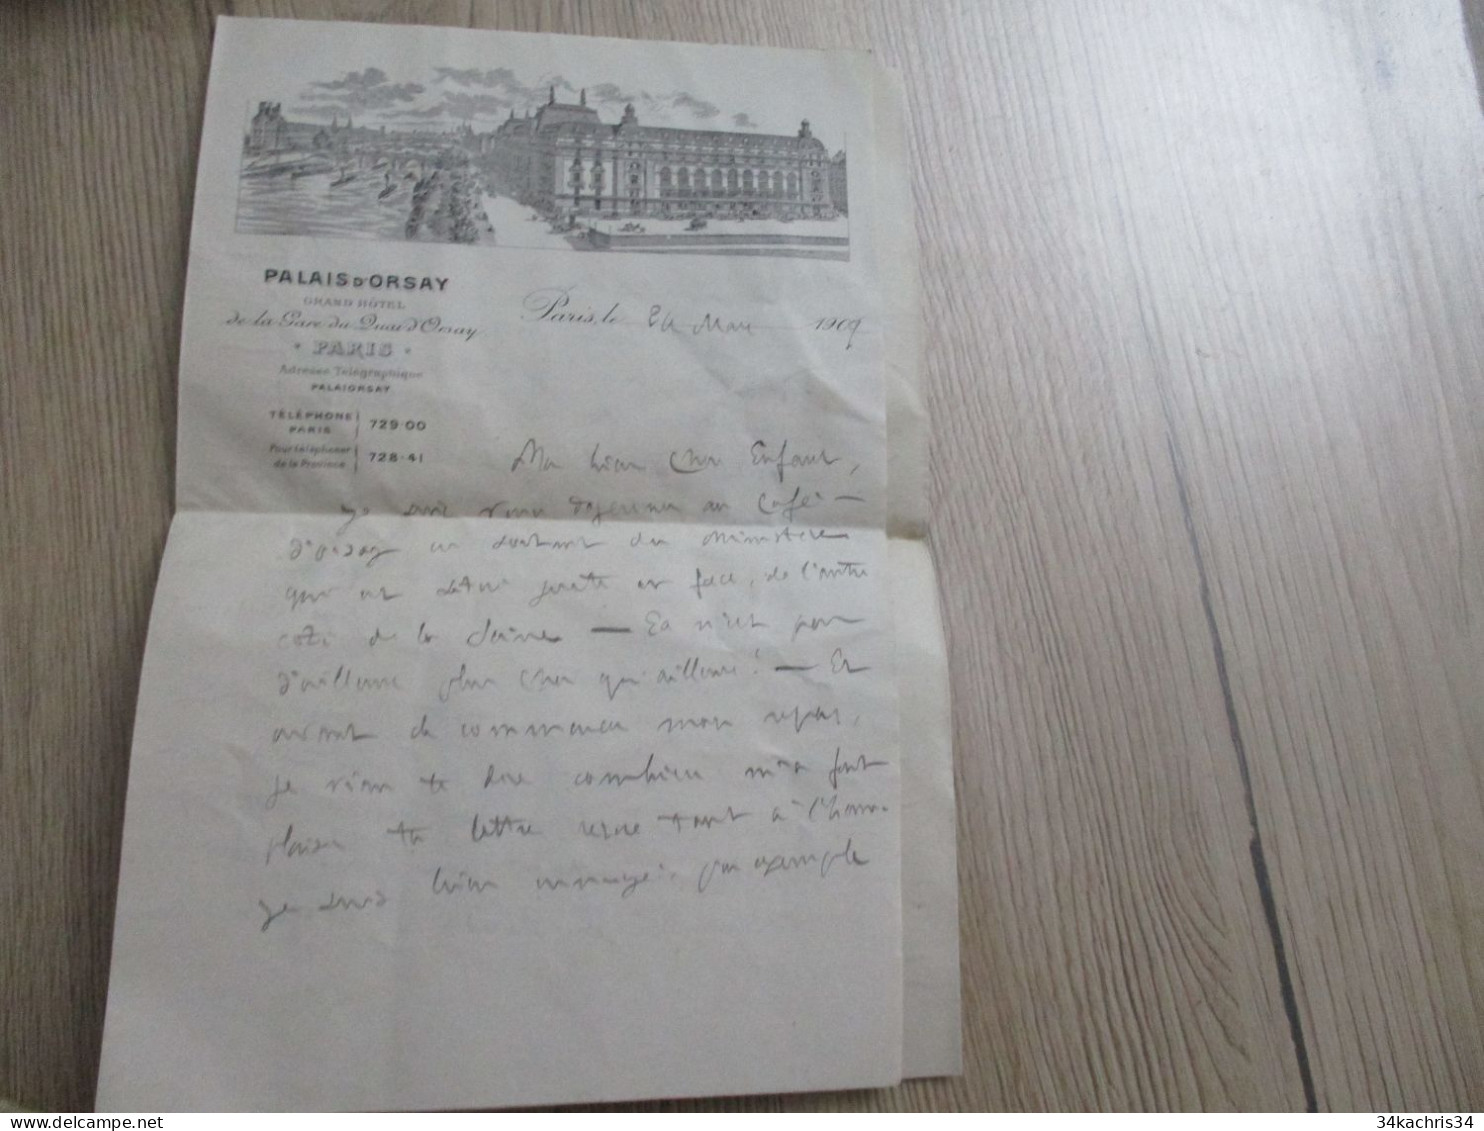 PALAIS D'ORSAY
GRAND HÔTEL
de la Gare du Quai d'Orsay
PARIS
Adresse Télégraphique
PALAIORSAY
TÉLÉPHONE PARIS 729-00
Pour téléphoner de la Province 728-41
Paris, le 24 Mars 1909
Mon bien cher Enfant,
je suis venu déjeuner au Café
d'Orsay en sortant du ministère
qui est situé juste en face, de l'autre
côté de la Seine — Ça n'est pas
d'ailleurs plus cher qu'ailleurs ! — Et
avant de commencer mon repas,
je viens te dire combien m'a fait
plaisir ta lettre reçue
je suis bien par exemple
delcampe.net
34kachris34